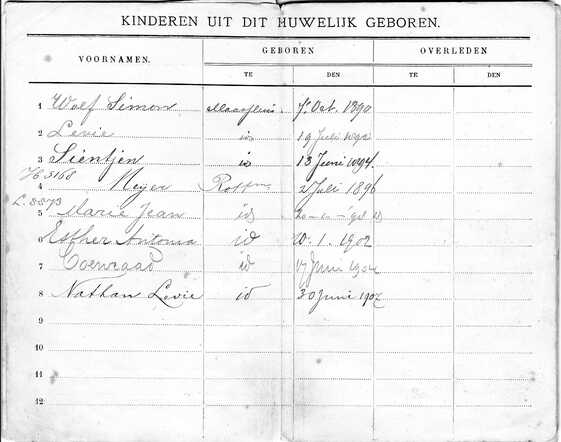 KINDEREN UIT DIT HUWELIJK GEBOREN.
VOORNAMEN. GEBOREN OVERLEDEN
TE DEN TE DEN
1 Wolf Simon Maassluis. Oct. 1890
2 Levie id 19 Juli
3 Sientjen id 13 Juni 1894.
4 Meyer Rott 2 Juli 1896
5 Marie Jean id
6 Esther Antonia id 1. 1902
7 Coenraad id Juni
8 Nathan Levie id 30 Juni 1907
9
10
11
12